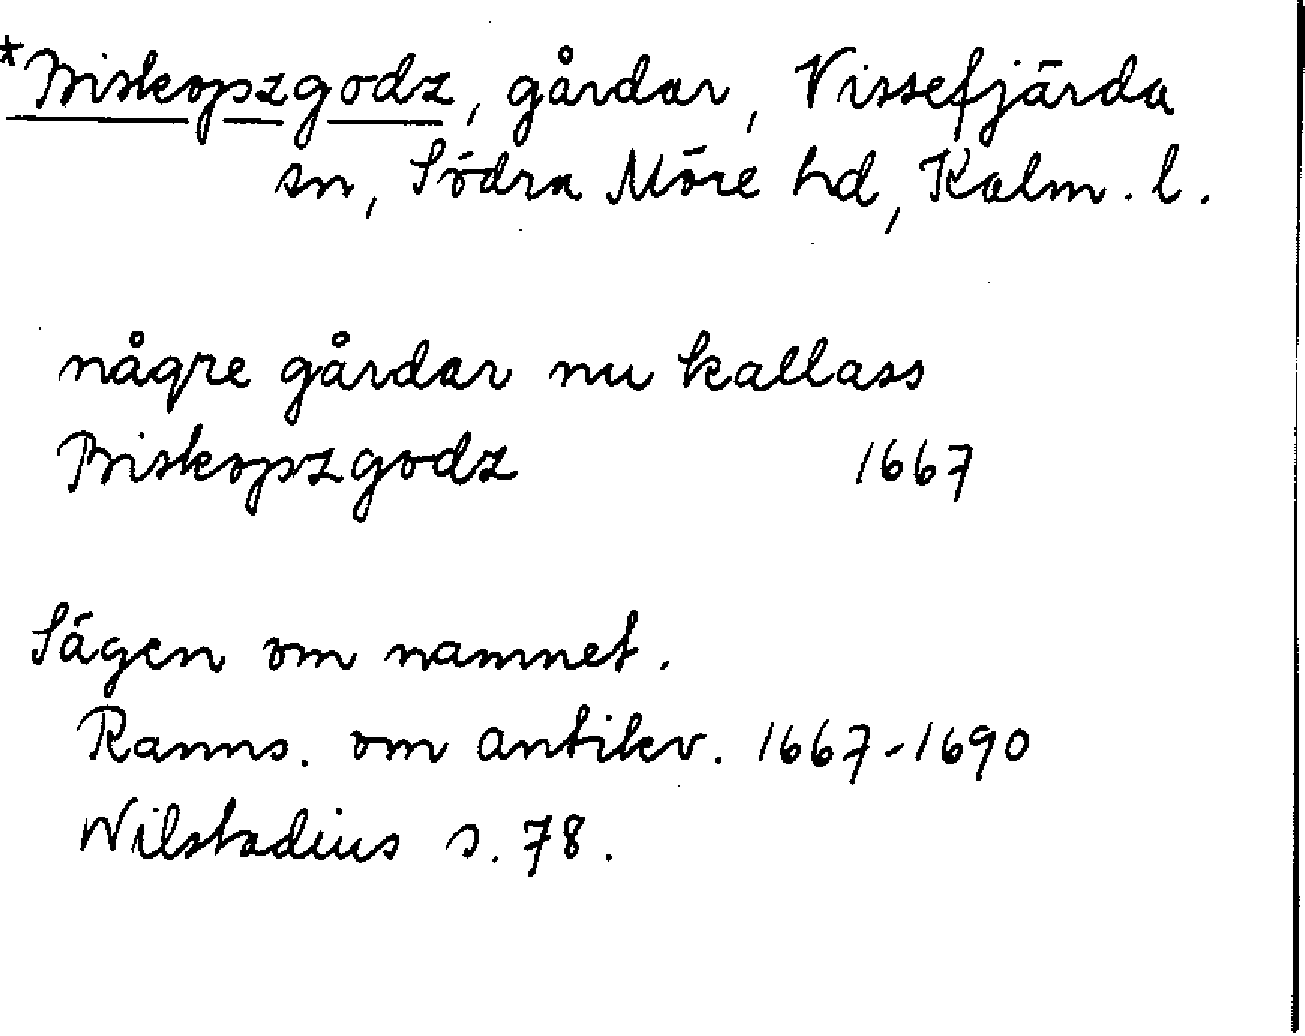 *Biskopzgodz, gårdar, Vissefjärda
sn, Södra Möre hd, Kalm. l.
någre gårdar nu kallass
Biskopzgodz 1667
Sägen om namnet.
Ranns. om antikv. 1667-1690
Wilstadius s. 78.